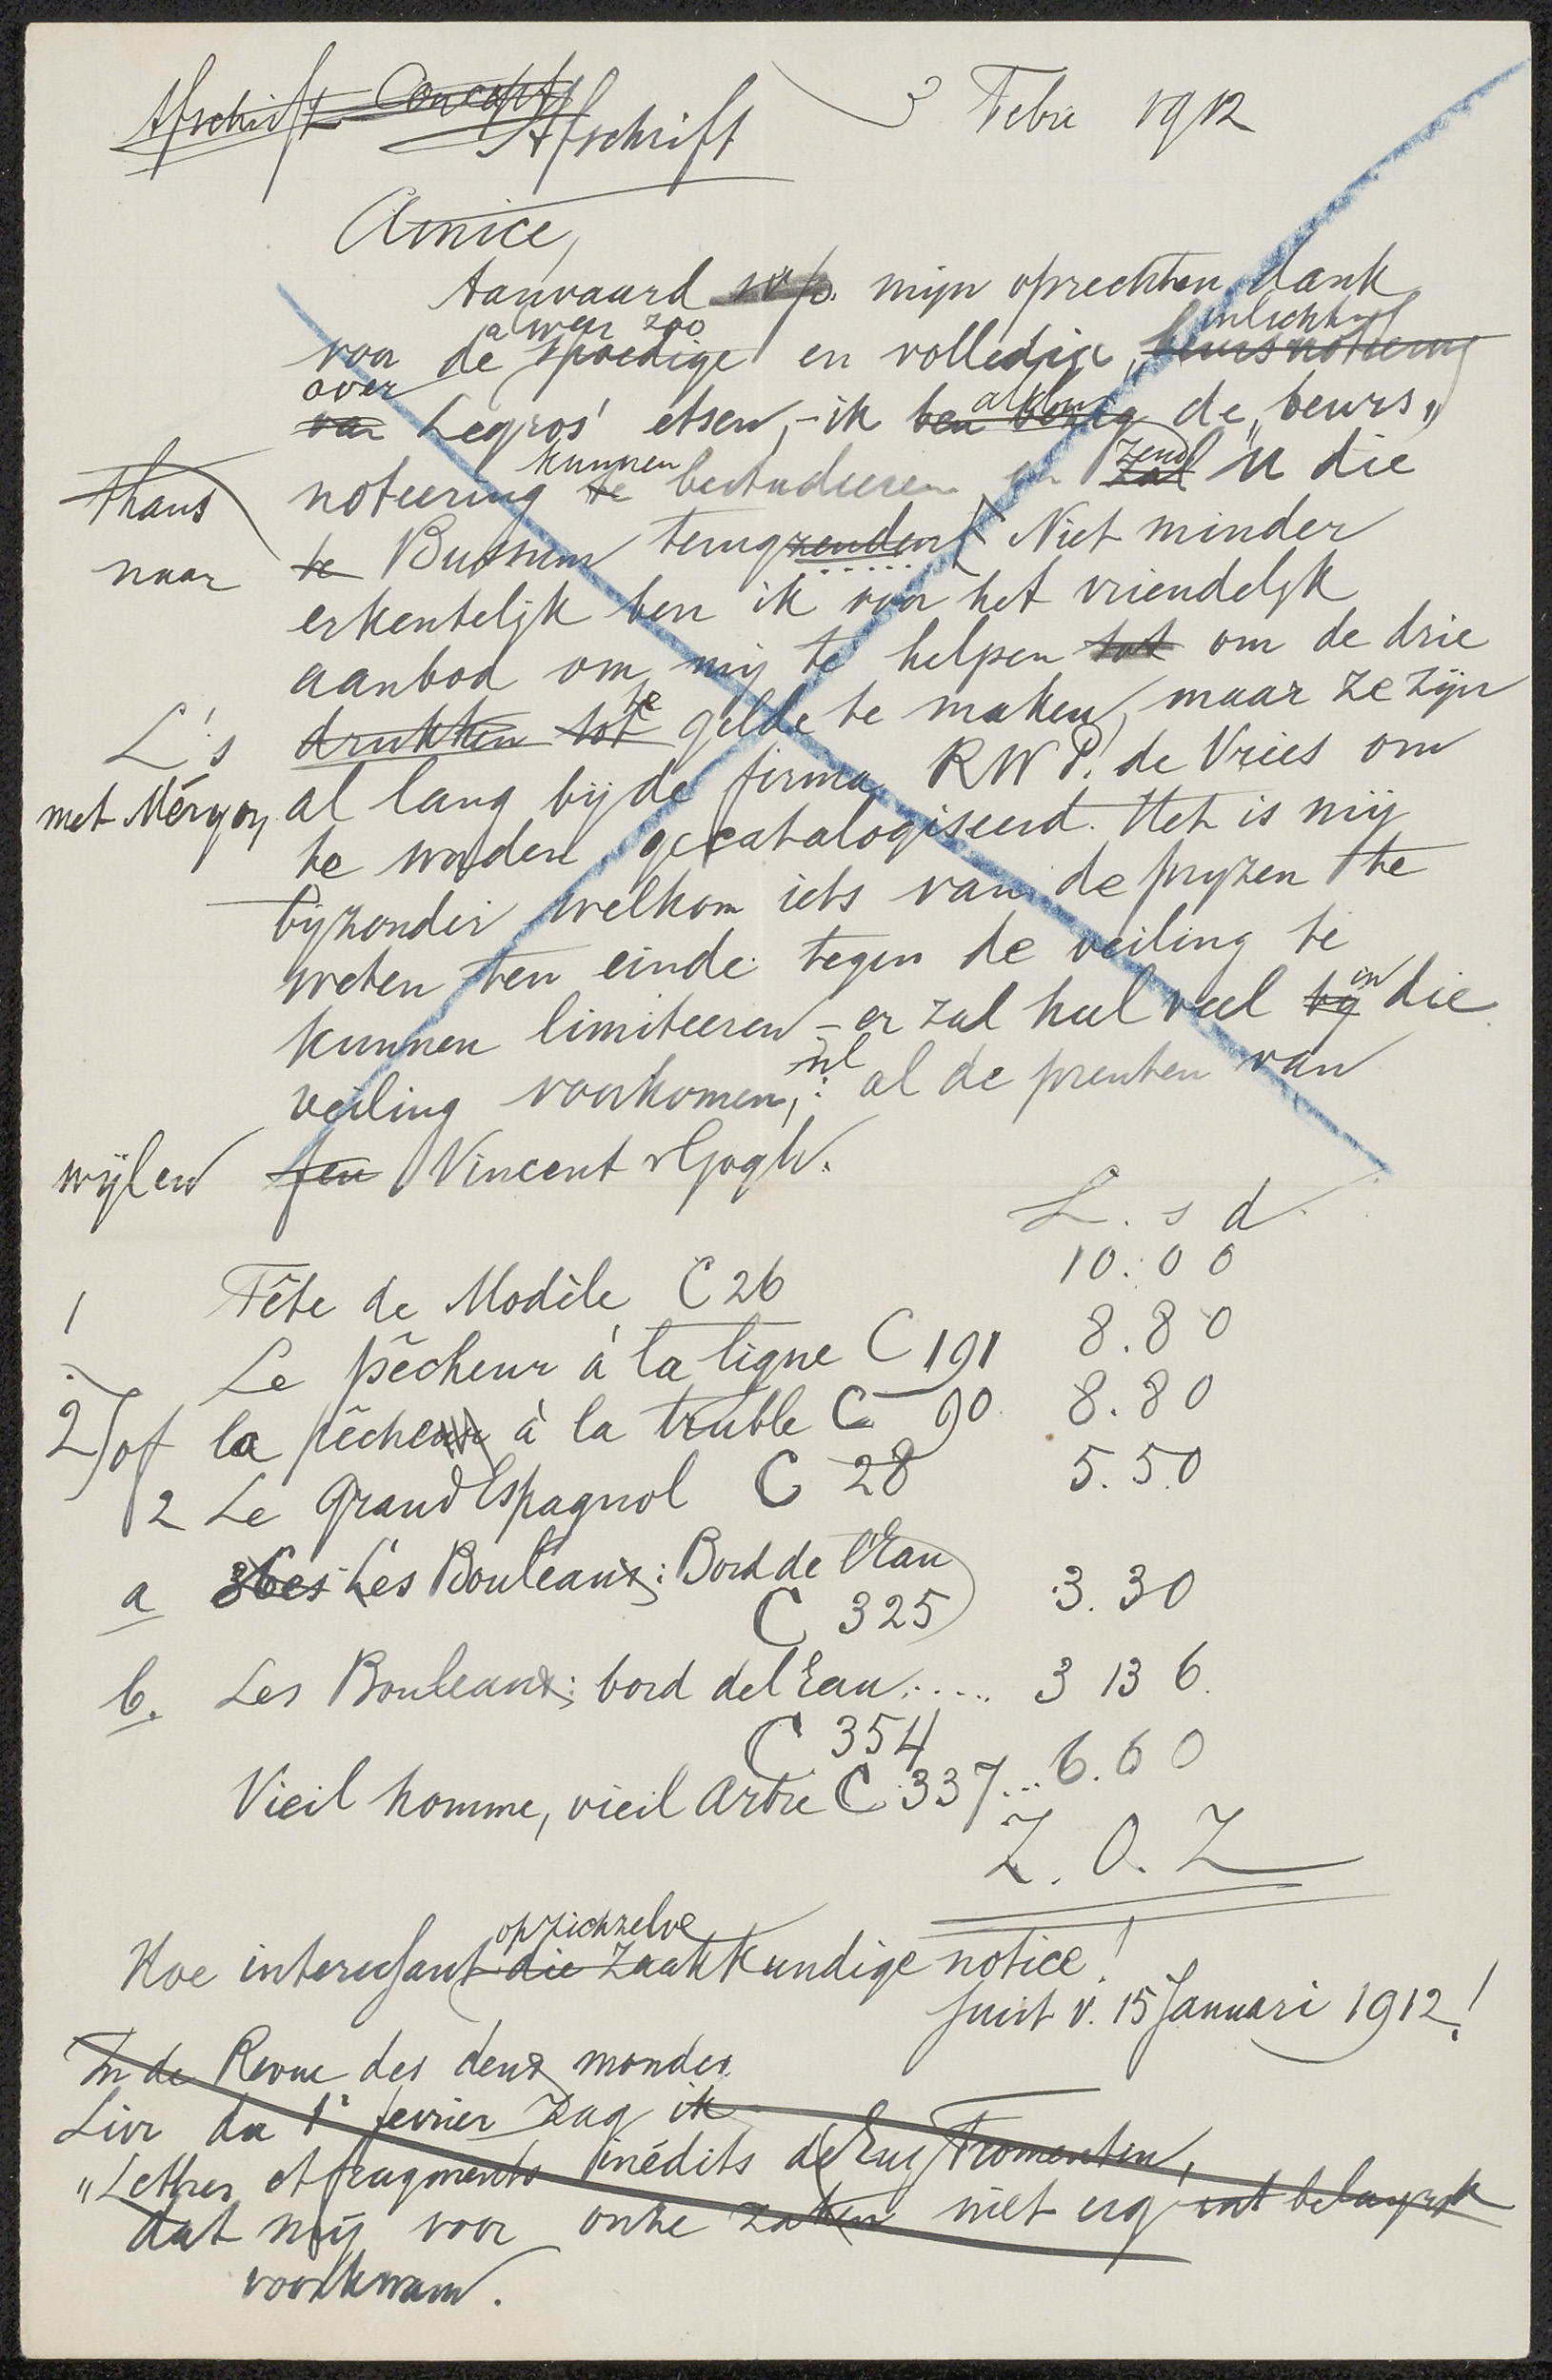 Afschrift Concept Afschrift 3 Febr 1912
Amice,
Aanvaard mijn oprechten dank
alweer zoo inlichting
voor de spoedige en volledige, beursnoteering
over
van Legros' etsen, - ik ben bezig de „beurs"
kunnen zend
thans noteering te bestudeeren en zal u die
naar te Bussum terugzenden. Niet minder
erkentelijk ben ik voor het vriendelijk
aanbod om mij te helpen tot om de drie
te
L's drukken tot gelde te maken, maar ze zijn
met Méryon al lang bij de firma RWP. de Vries om
te worden gecatalogiseerd. Het is mij
bijzonder welkom iets van de prijzen te
weten ten einde tegen de veiling te
in
kunnen limiteeren - er zal heel veel bij die
nl
veiling voorkomen, : al de prenten van
wijlen feu Vincent v Gogh.
L. s d.
10. 0 0
1 Tête de Modèle C 26
Le pêcheur à la ligne C 191 8. 8 0
2) of la pêcheur à la truble C 90 8. 8 0
2 Le Grand Espagnol C 28 5. 5. 0
a 3 Les Les Bouleaux: Bord de l'Eau
C 325 3. 3 0
b. Les Bouleaux; bord de l'Eau..... 3 13 6.
C 354
Vieil homme, vieil arbre C 337... 6. 6 0
Z. O. Z
op zichzelve
Hoe interessant die zaakkundige notice!
juist v. 15 Januari 1912!
In de Revue des deux mondes
Livr du 1r fevrier zag ik
„Lettres et fragments inédits de Eug Fromentin,
dat mij voor onze zaken niet erg belangrijk
voorkwam.